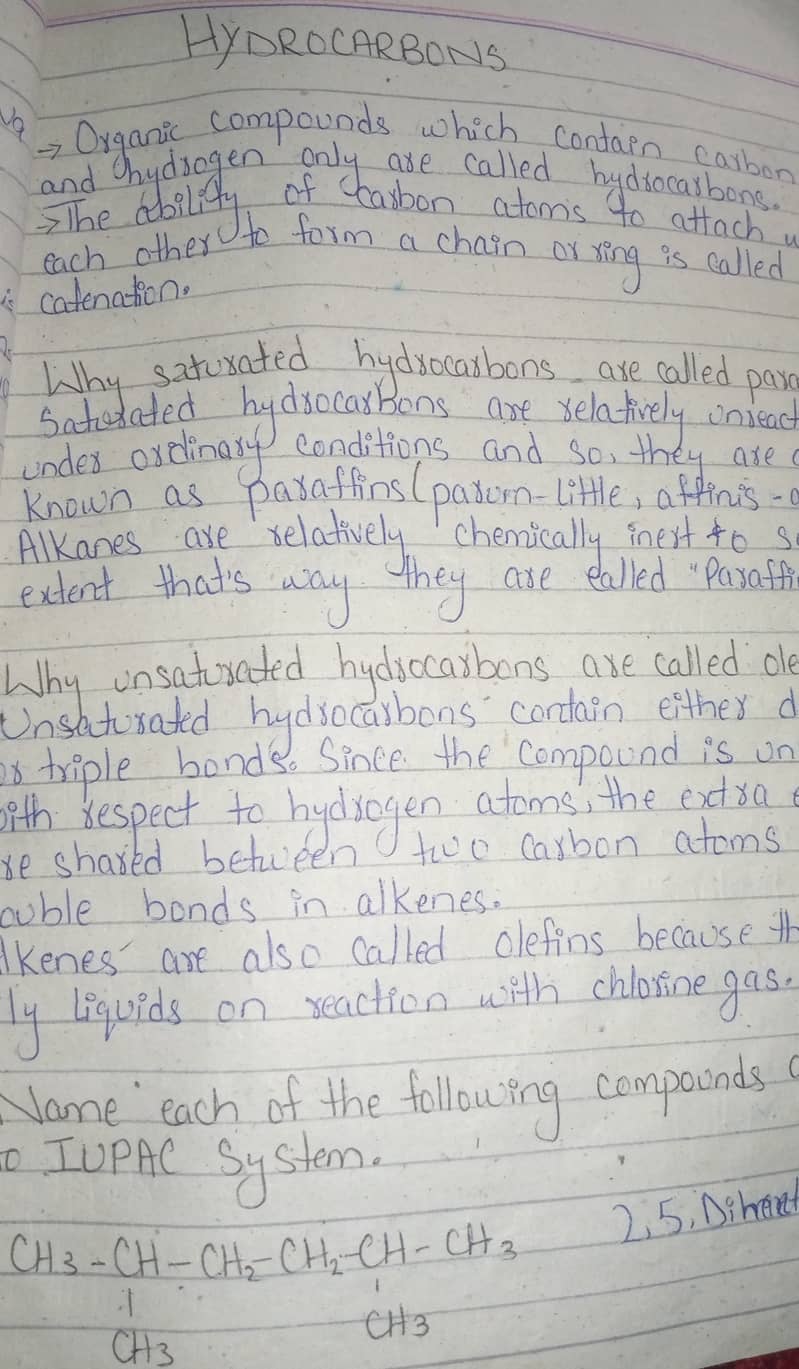 HYDROCARBONS
→ Organic compounds which contain carbon
and hydrogen only are called hydrocarbons.
→ The ability of carbon atoms to attach
each other to form a chain or ring is called
catenation.
Why saturated hydrocarbons are called para
Saturated hydrocarbons are relatively unreact
under ordinary conditions and so, they are
Known as paraffins (parum-little, affinis -
Alkanes are relatively chemically inert to s
extent that's way they are called "Paraffi
Why unsaturated hydrocarbons are called ole
Unsaturated hydrocarbons contain either d
or triple bonds. Since the compound is un
ith respect to hydrogen atoms, the extra e
re shared between two carbon atoms
ouble bonds in alkenes.
lkenes are also called olefins because th
ly liquids on reaction with chlorine gas.
Name each of the following compounds
o IUPAC System.
CH3 - CH - CH2 - CH2 - CH - CH3 2,5,
CH3 CH3